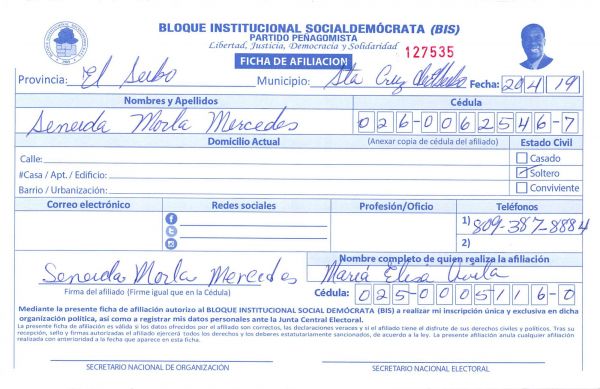 BLOQUE INSTITUCIONAL SOCIALDEMÓCRATA (BIS)
PARTIDO PEÑAGOMISTA
Libertad, Justicia, Democracia y Solidaridad
127535
FICHA DE AFILIACION
Provincia: El Seibo Municipio: Sta Cruz del Seibo Fecha: 20 4 19
Nombres y Apellidos Cédula
Seneida Morla Mercedes 026-0062546-7
Domicilio Actual (Anexar copia de cédula del afiliado) Estado Civil
Calle: Casado
#Casa / Apt. / Edificio: Soltero
Barrio / Urbanización: Conviviente
Correo electrónico Redes sociales Profesión/Oficio Teléfonos
1) 809-387-8884
2)
Nombre completo de quien realiza la afiliación
Seneida Morla Mercedes Mariá Elisa Avila
Firma del afiliado (Firme igual que en la Cédula) Cédula: 025-0005116-0
Mediante la presente ficha de afiliación autorizo al BLOQUE INSTITUCIONAL SOCIAL DEMÓCRATA (BIS) a realizar mi inscripción única y exclusiva en dicha
organización política, así como a registrar mis datos personales ante la Junta Central Electoral.
La presente ficha de afiliación es válida si los datos ofrecidos por el afiliado son correctos, las declaraciones veraces y si el afiliado tiene el disfrute de sus derechos civiles y políticos. Tras su
recepción, sello y firmas autorizadas el afiliado ejercerá todos los derechos y los deberes estatutariamente sancionados, de acuerdo a la ley. La presente afiliación anula cualquier afiliación
realizada con anterioridad a la fecha que aparece en esta ficha.
SECRETARIO NACIONAL DE ORGANIZACIÓN SECRETARIO NACIONAL ELECTORAL